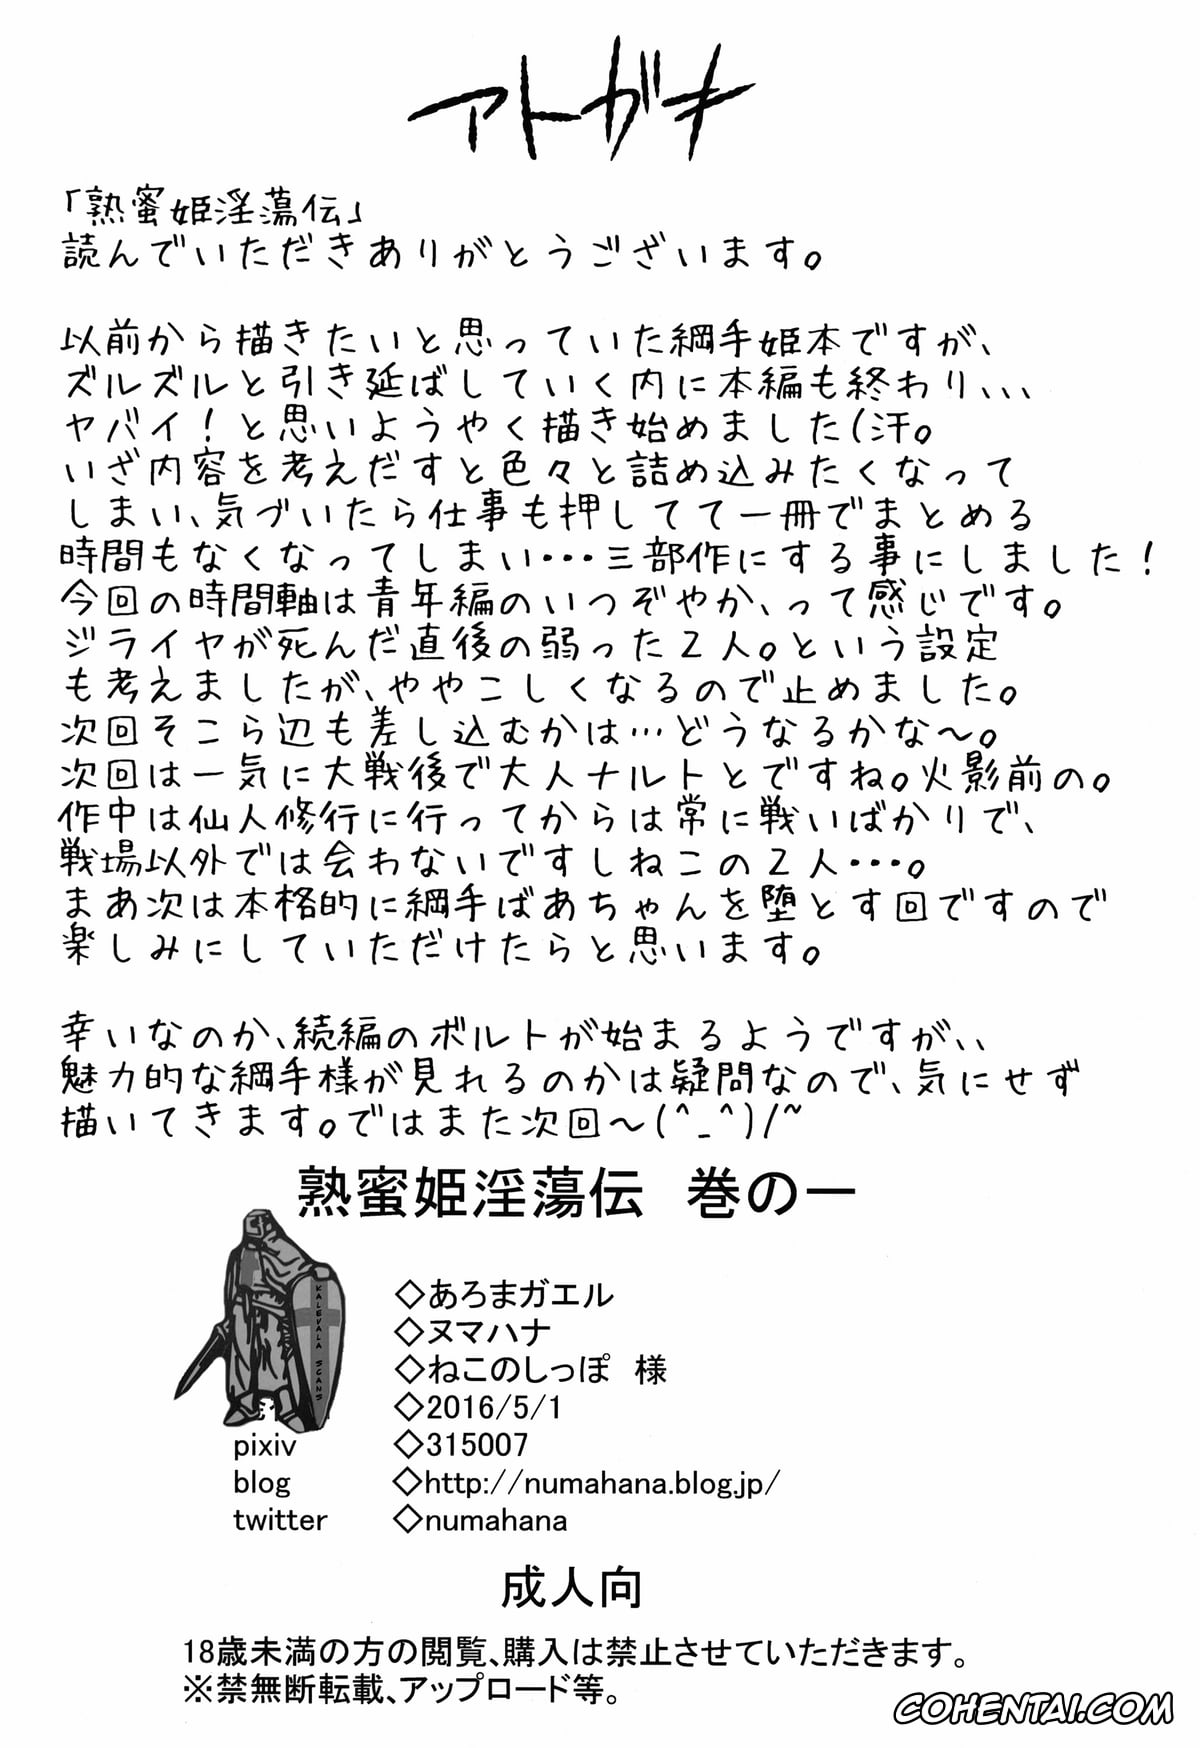 アトガキ
「熟蜜姫淫蕩伝」
読んでいただきありがとうございます。
以前から描きたいと思っていた綱手姫本ですが、
ズルズルと引き延ばしていく内に本編も終わり、、、
ヤバイ！と思いようやく描き始めました(汗。
いざ内容を考えだすと色々と詰め込みたくなって
しまい、気づいたら仕事も押してて一冊でまとめる
時間もなくなってしまい・・・三部作にする事にしました！
今回の時間軸は青年編のいつぞやか、って感じです。
ジライヤが死んだ直後の弱った2人。という設定
も考えましたが、ややこしくなるので止めました。
次回そこら辺も差し込むかは…どうなるかな～。
次回は一気に大戦後で大人ナルトとですね。火影前の。
作中は仙人修行に行ってからは常に戦いばかりで、
戦場以外では会わないですしねこの2人・・・。
まあ次は本格的に綱手ばあちゃんを堕とす回ですので
楽しみにしていただけたらと思います。
幸いなのか、続編のボルトが始まるようですが、、
魅力的な綱手様が見れるのかは疑問なので、気にせず
描いてきます。ではまた次回～(^_^)/~
熟蜜姫淫蕩伝 巻の一
◇あろまガエル
◇ヌマハナ
◇ねこのしっぽ 様
◇2016/5/1
pixiv ◇315007
blog ◇http://numahana.blog.jp/
twitter ◇numahana
KALEVALA SCANS
成人向
18歳未満の方の閲覧、購入は禁止させていただきます。
※禁無断転載、アップロード等。
COHENTAI.COM